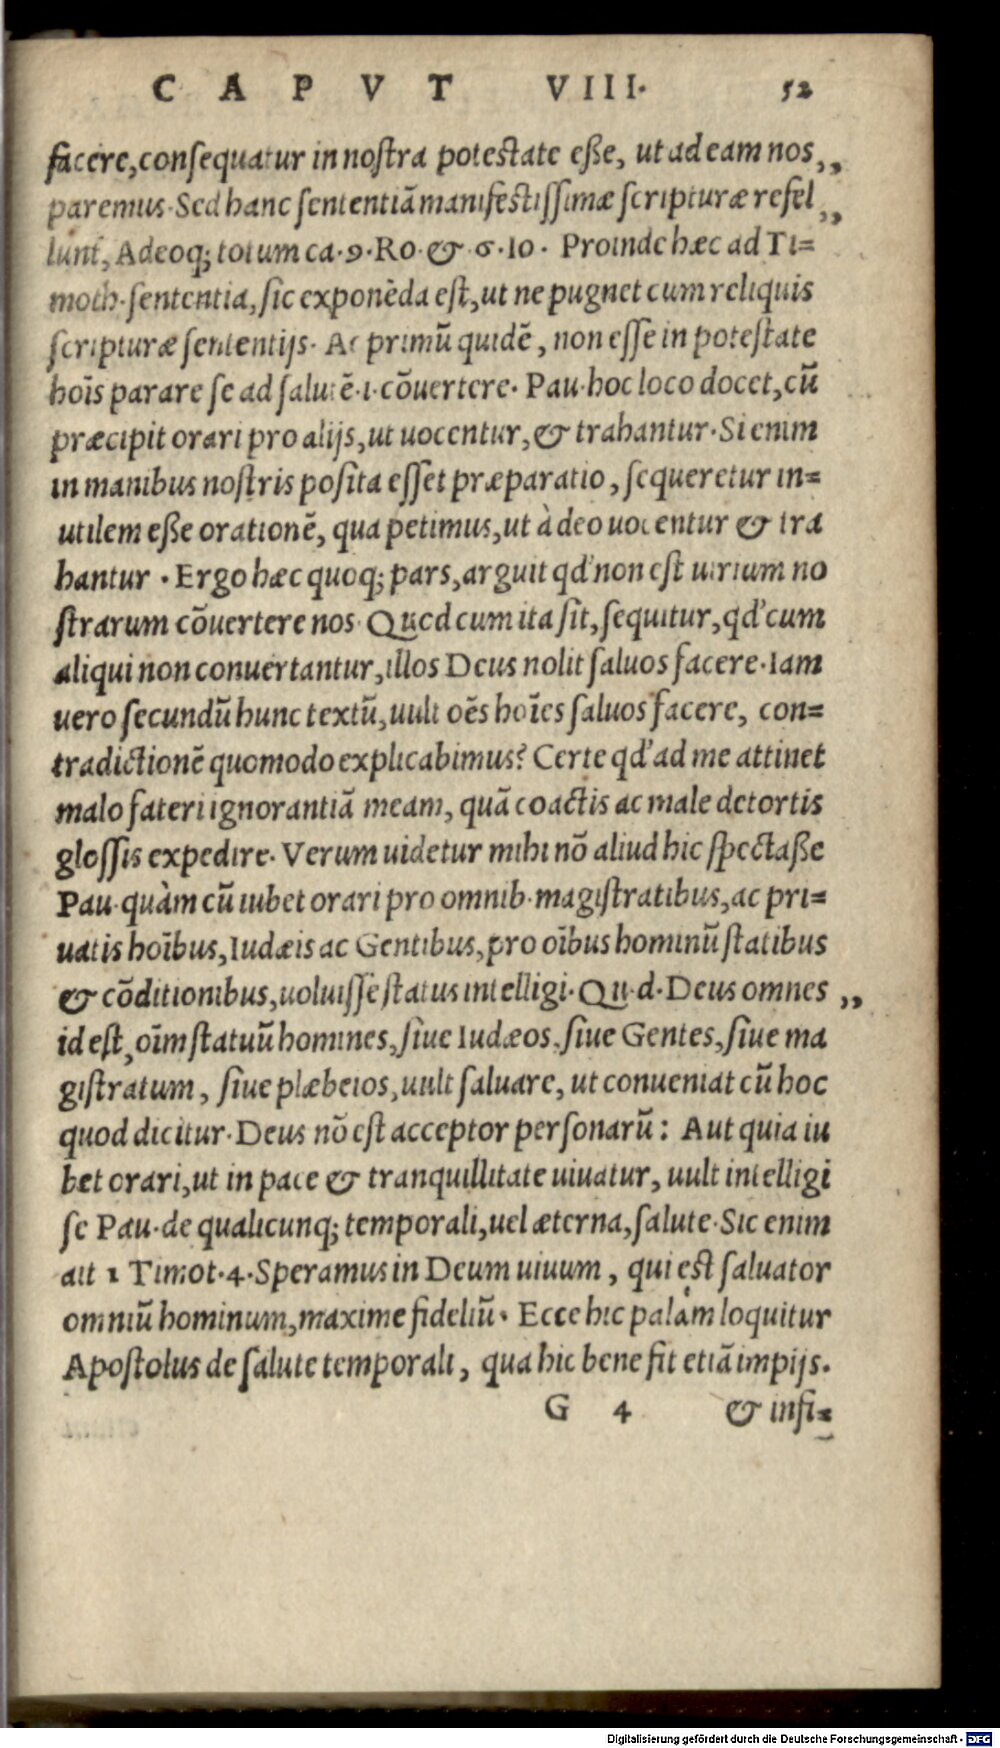 CAPVT VIII. 52
facere, consequatur in nostra potestate eße, ut ad eam nos „
paremus. Sed hanc sententiā manifestissimæ scripturæ refel „
lunt, Adeoq; totum ca. 9. Ro. & 6. 10. Proinde hæc ad Ti=
moth. sententia, sic exponēda est, ut ne pugnet cum reliquis
scripturæ sententijs. Ac primū quidē, non esse in potestate
hoīs parare se ad salutē .i. cōuertere. Pau. hoc loco docet, cū
præcipit orari pro alijs, ut uocentur, & trahantur. Si enim
in manibus nostris posita esset præparatio, sequeretur in=
utilem eße orationē, qua petimus, ut à deo uocentur & tra
hantur. Ergo hæc quoq; pars, arguit qd' non est uirium no
strarum cōuertere nos. Quod cum ita sit, sequitur, qd' cum
aliqui non conuertantur, illos Deus nolit saluos facere. Iam
uero secundū hunc textū, uult oēs hoīes saluos facere, con=
tradictionē quomodo explicabimus? Certe qd' ad me attinet
malo fateri ignorantiā meam, quā coactis ac male detortis
glossis expedire. Verum uidetur mihi nō aliud hic spectaße
Pau. quàm cū iubet orari pro omnib. magistratibus, ac pri=
uatis hoībus, Iudæis ac Gentibus, pro oībus hominū statibus
& cōditionibus, uoluisse status intelligi. Qu. d. Deus omnes „
id est, oīm statuū homines, siue Iudæos, siue Gentes, siue ma
gistratum, siue plæbeios, uult saluare, ut conueniat cū hoc
quod dicitur. Deus nō est acceptor personarū: Aut quia iu
bet orari, ut in pace & tranquillitate uiuatur, uult intelligi
se Pau. de qualicunq; temporali, uel æterna, salute. Sic enim
ait 1 Timot. 4. Speramus in Deum uiuum, qui est saluator
omniū hominum, maxime fideliū. Ecce hic palàm loquitur
Apostolus de salute temporali, qua hic bene fit etiā impijs.
G 4 & infi=
Digitalisierung gefördert durch die Deutsche Forschungsgemeinschaft - DFG